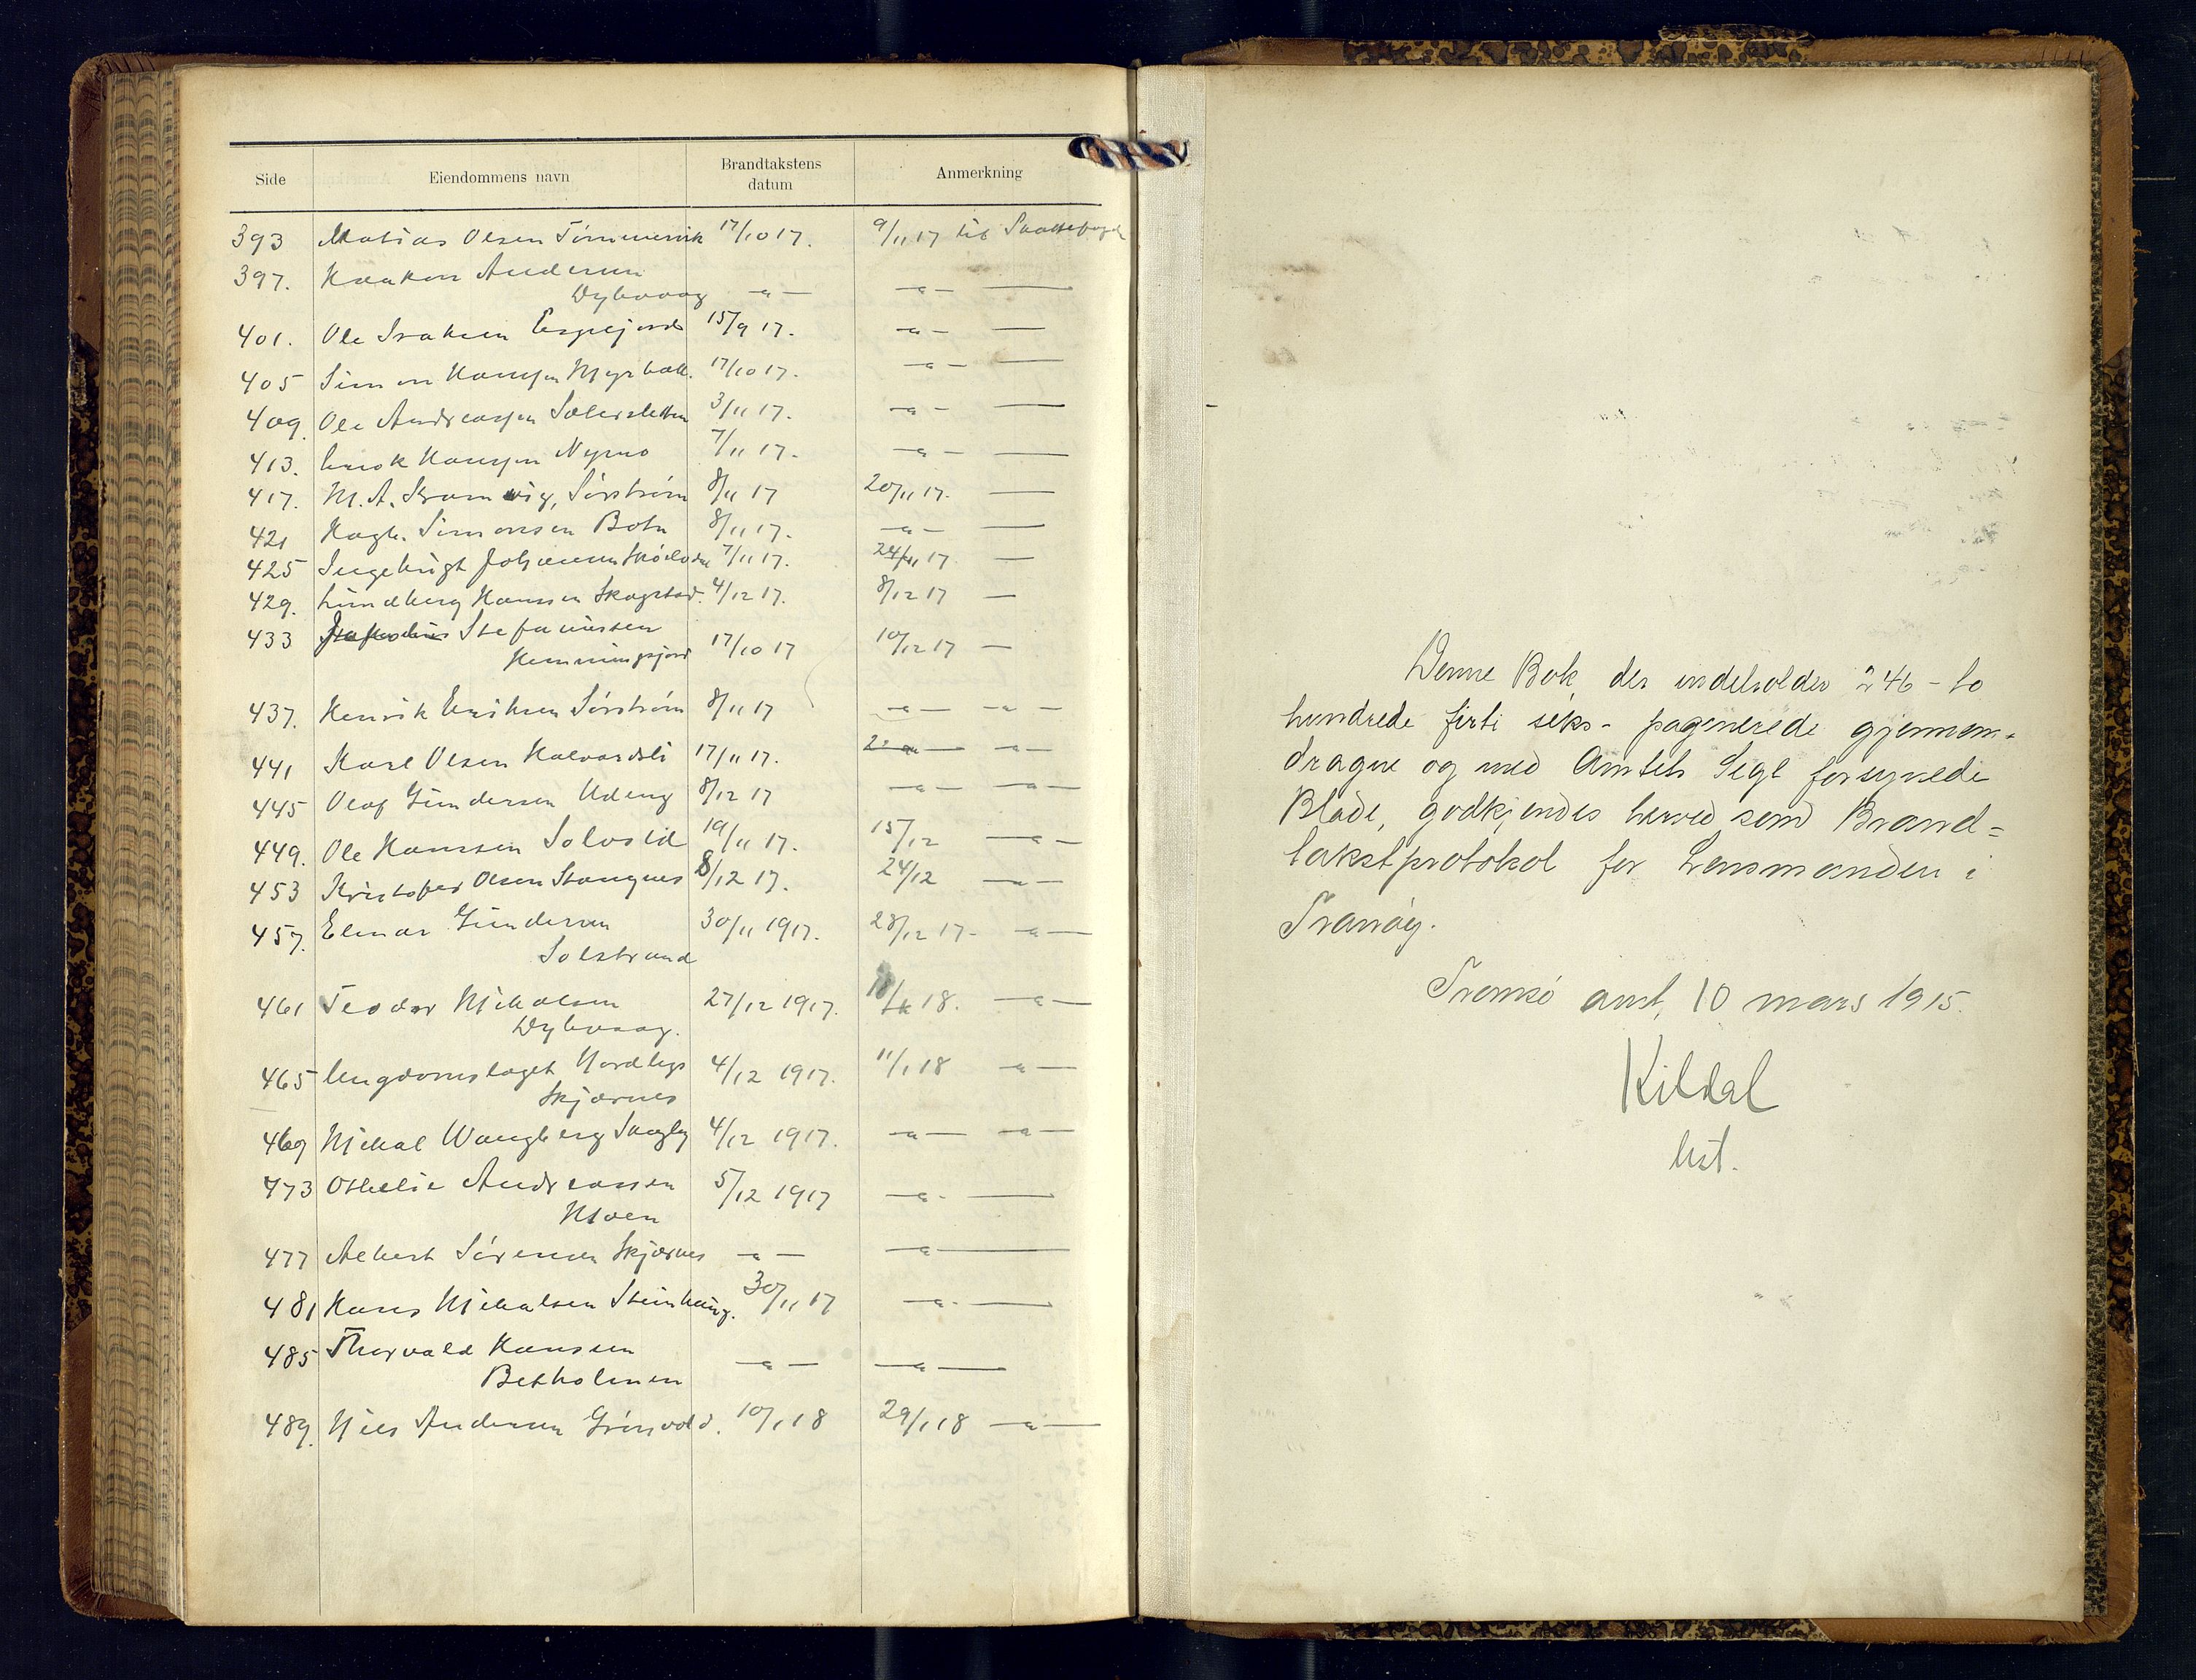 Side Eiendommens navn Brandtakstens datum Anmerkning
393 Matias Olsen Tømmervik 17/10 17. 9/11 17 til
397. Haakon Andersen
Dybvaag - " - - " - —
401. Ole Isaksen Espejord 15/9 17. - " - —
405 Simon Hansen Myrbakk. 17/10 17. - " - —
409. Ole Andreassen 3/11 17. - " - —
413. Enok Hansen Nymo 7/11 17. - " - —
417. M. A. Kramvig, Sørstrøm 8/11 17 20/11 17. —
421 Hagb. Simonsen Botn 8/11 17. - " - —
425 Ingebrigt Johansen 7/11 17. 24/11 17. —
429. Lundberg Hanssen Skogstad. 4/12 17. 8/12 17 —
433 Stefanussen
Hemmingsjord 17/10 17 10/12 17 —
437. Henrik Eriksen Sørstrøm 8/11 17 - " - - " -
441 Karl Olsen Halvardsli 17/11 17. - " - - " -
445 Olaf Gundersen Udeng 8/12 17 - " - - " -
449. Ole Hanssen Solvslid 19/11 17. 15/12 - " -
453 Kristofer Olsen Stangnes 8/12 17. 24/12 - " -
457. Elmar Gundersen
Solstrand 30/11 1917. 28/12 17. - " -
461 Teodor Mikalsen
Dybvaag. 27/12 1917. 18. - " -
465 Ungdomslaget Nordlys
Skjærnes 4/12 1917. 11/1 18 - " -
469 Mikal Wangberg 4/12 1917. - " - - " -
473 Othelie Andreassen
Moen 5/12 1917 - " - —
477 Albert Sørensen Skjærnes - " - - " - —
481 Hans Mikalsen Steinhaug. 30/11 17 - " - —
485 Thorvald Hanssen
Betholmen - " - - " - —
489. Nils Andersen Grønvold. 10/1 18 29/1 18 - " -
Denne Bok, der indeholder 246 - to
hundrede firti seks - paginerede gjennem-
dragne og med Amtets Segl forsynede
Blade, godkjendes herved som Brand-
takstprotokol for Lensmanden i
Tranøy.
Tromsø amt, 10 mars 1915.
Kildal
kst.